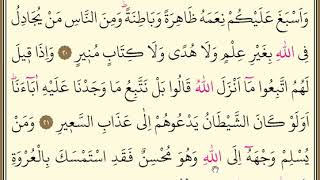 وَاَسْبَغَ عَلَيْكُمْ نِعَمَهُ ظَاهِرَةً وَبَاطِنَةًۜ وَمِنَ النَّاسِ مَنْ يُجَادِلُ
فِي اللّٰهِ بِغَيْرِ عِلْمٍ وَلَا هُدًى وَلَا كِتَابٍ مُنٖيرٍ ﴿٢٠﴾ وَاِذَا قٖيلَ
لَهُمُ اتَّبِعُوا مَٓا اَنْزَلَ اللّٰهُ قَالُوا بَلْ نَتَّبِعُ مَا وَجَدْنَا عَلَيْهِ اٰبَٓاءَنَاۜ
اَوَلَوْ كَانَ الشَّيْطَانُ يَدْعُوهُمْ اِلٰى عَذَابِ السَّعٖيرِ ﴿٢١﴾ وَمَنْ
يُسْلِمْ وَجْهَهُٓ اِلَى اللّٰهِ وَهُوَ مُحْسِنٌ فَقَدِ اسْتَمْسَكَ بِالْعُرْوَةِ